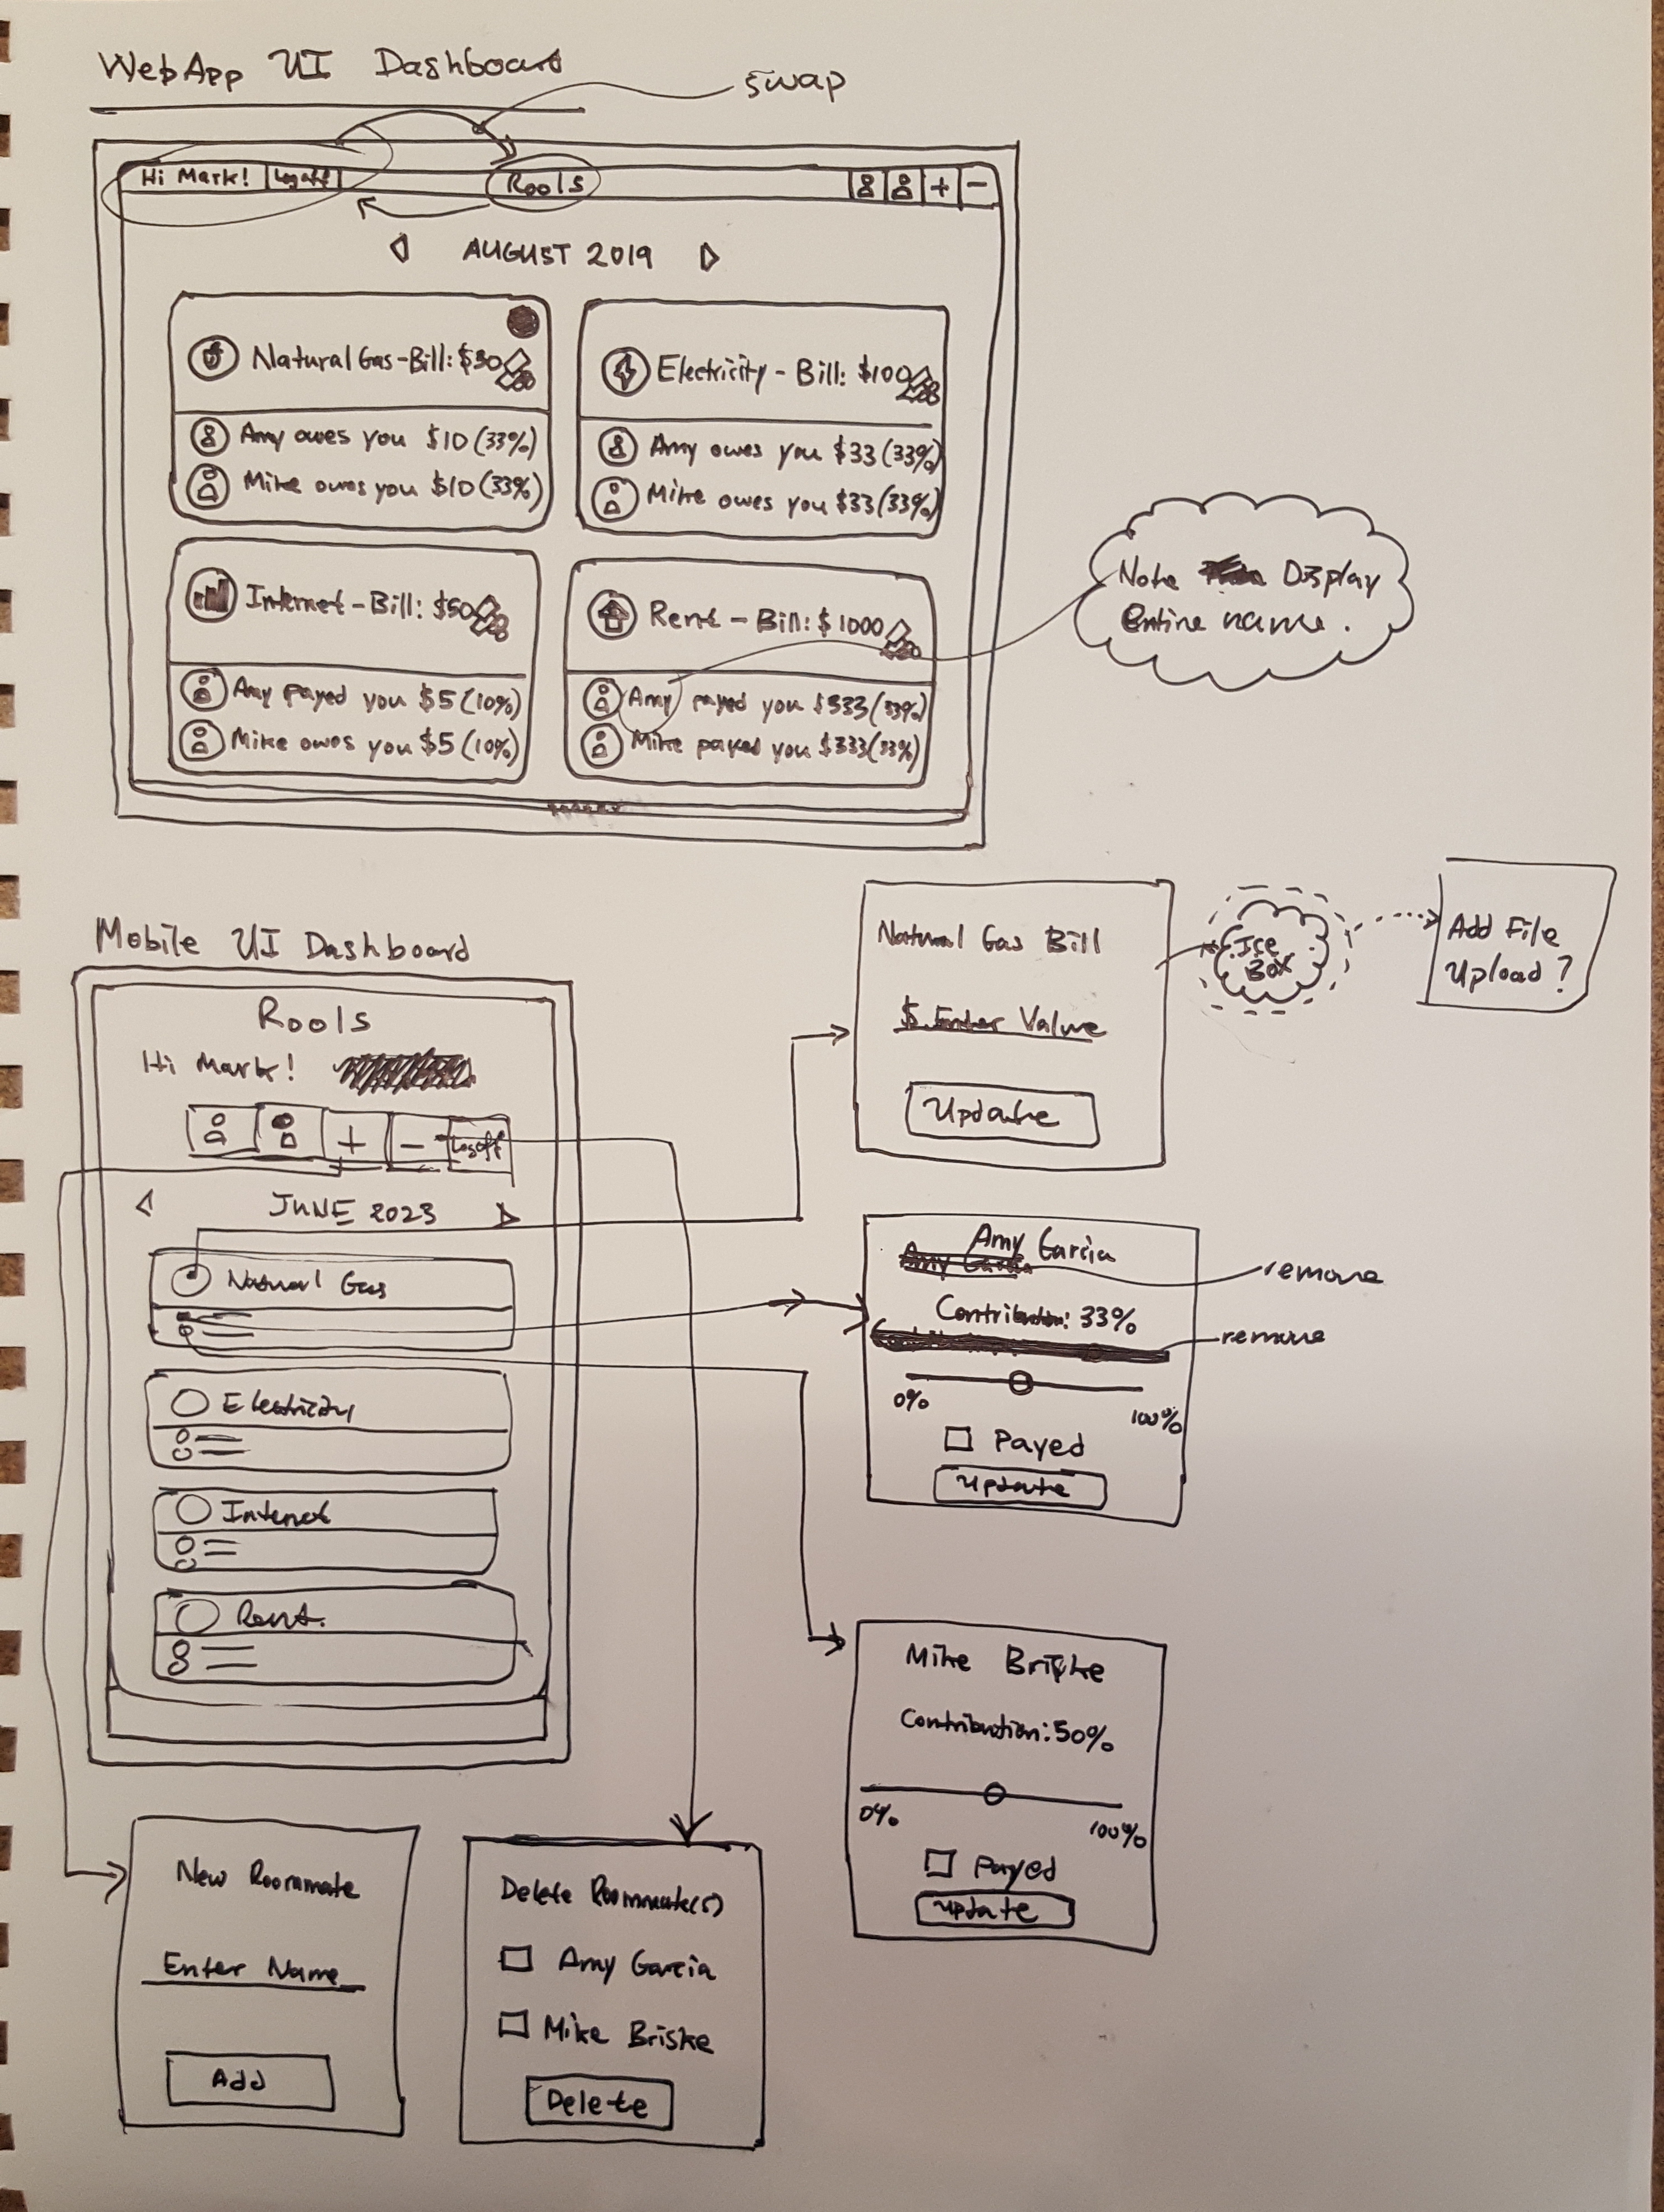 WebApp UI Dashboard
swap
Hi Mark! Logoff Rools + -
AUGUST 2019
Natural Gas-Bill: $30
Amy owes you $10 (33%)
Mike owes you $10 (33%)
Electricity - Bill: $100
Amy owes you $33 (33%)
Mike owes you $33 (33%)
Internet-Bill: $50
Amy payed you $5 (10%)
Mike owes you $5 (10%)
Rent - Bill: $1000
Amy payed you $333 (33%)
Mike payed you $333 (33%)
Note Display
Entire name.
Mobile UI Dashboard
Rools
Hi Mark!
+ - Logoff
JUNE 2023
Natural Gas
Electricity
Internet
Rent.
Natural Gas Bill
$ Enter Value
Update
Ice
Box
Add File
Upload?
Amy Garcia
Amy Garcia
remove
Contribution: 33%
remove
0% 100%
Payed
Update
Mike Briske
Contribution: 50%
0% 100%
Payed
Update
New Roommate
Enter Name
Add
Delete Roommate(s)
Amy Garcia
Mike Briske
Delete